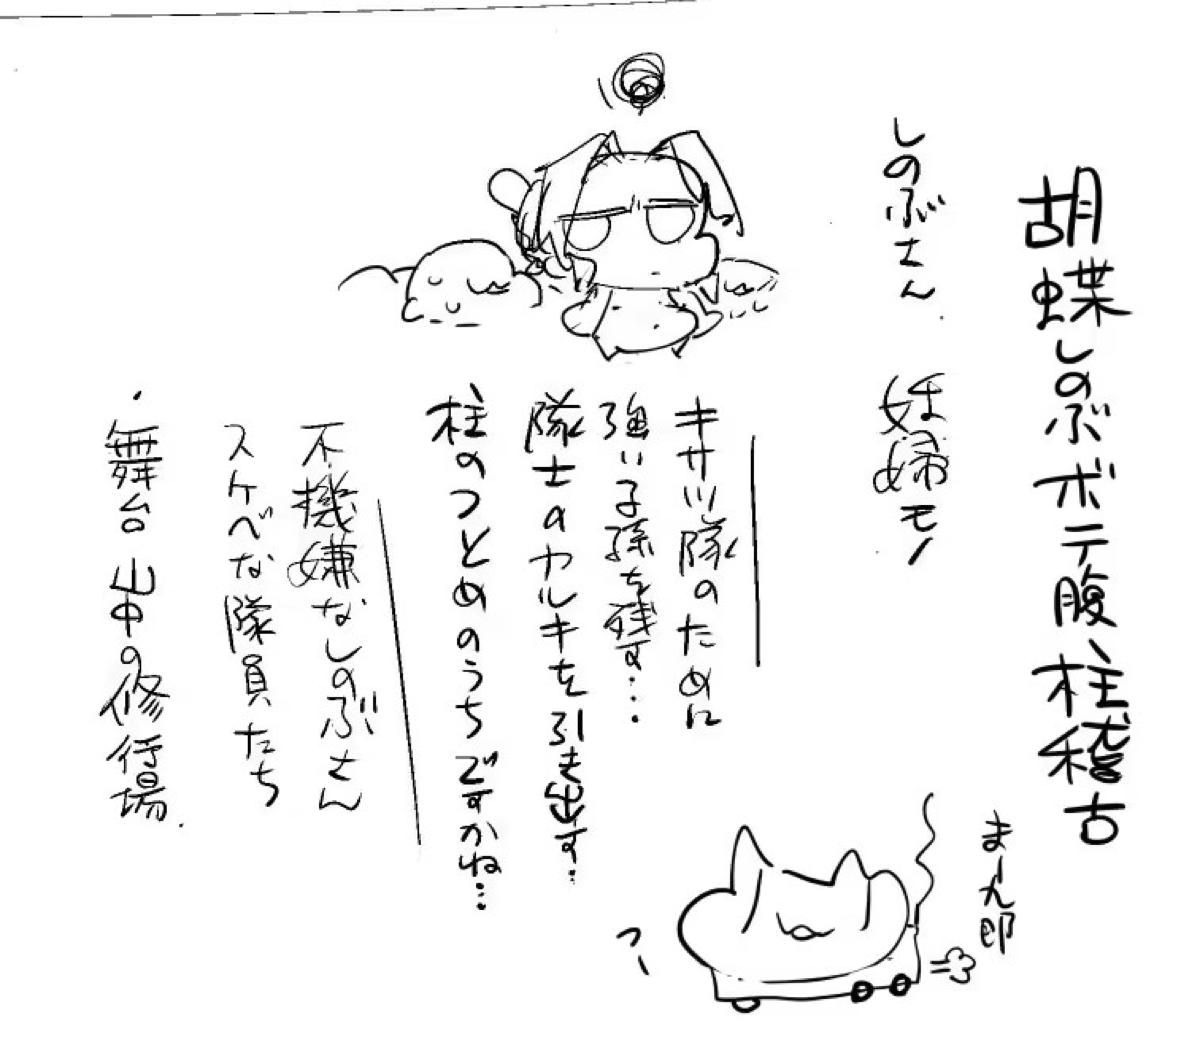 胡蝶しのぶボテ腹柱稽古
まー九郎
しのぶさん 妊婦モノ
キサツ隊のために
強い子孫を残す…
隊士のヤルキを引き出す.
柱のつとめのうちですかね…
不機嫌なしのぶさん
スケベな隊員たち
・舞台 山中の修行場.
つー